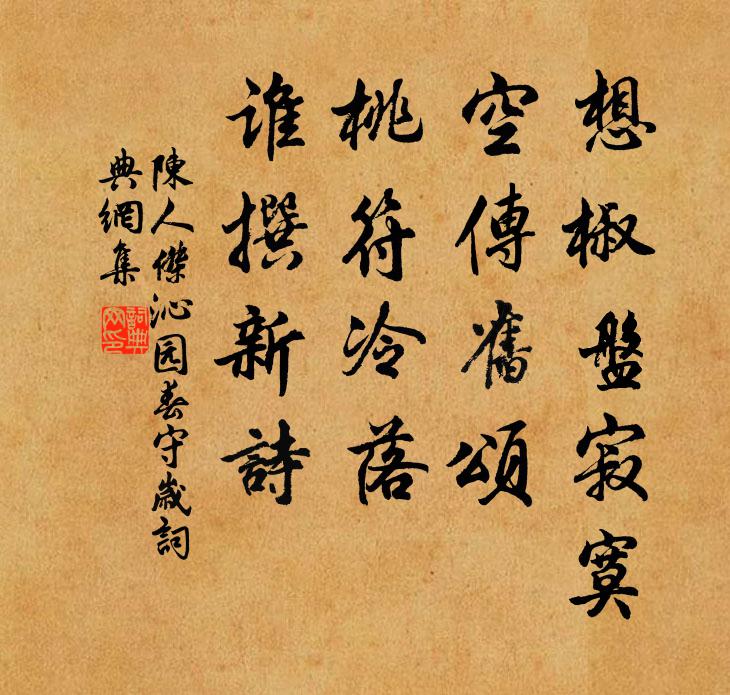 想椒盤寂寞
空傳舊頌
桃符冷落
谁撰新詩
陳人傑沁园春守歲詞
典網集
詞典
网印